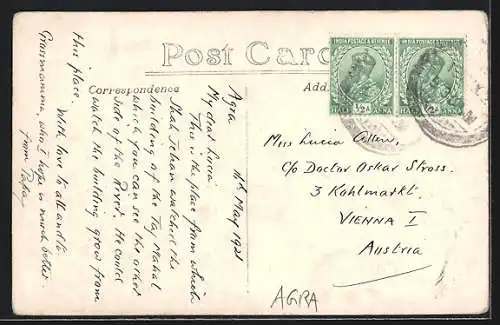 Post Card
Correspondence
Add
INDIA POSTAGE & REVENUE
INDIA POSTAGE & REVENUE
HALF ½A ANNA
HALF ½A ANNA
Agra
4th May 1931
My dear Lucia
This is the place from which
Shah Jehan watched the
building of the Taj Mahal
which you can see the other
side of the River. He could
watch the building grow from
this place.
With love to all and to
Grandmamma, who I hope is much better.
from Papa
Miss Lucia
c/o Doctor Oskar Stross.
3 Kohlmarkt.
VIENNA I
Austria
AGRA